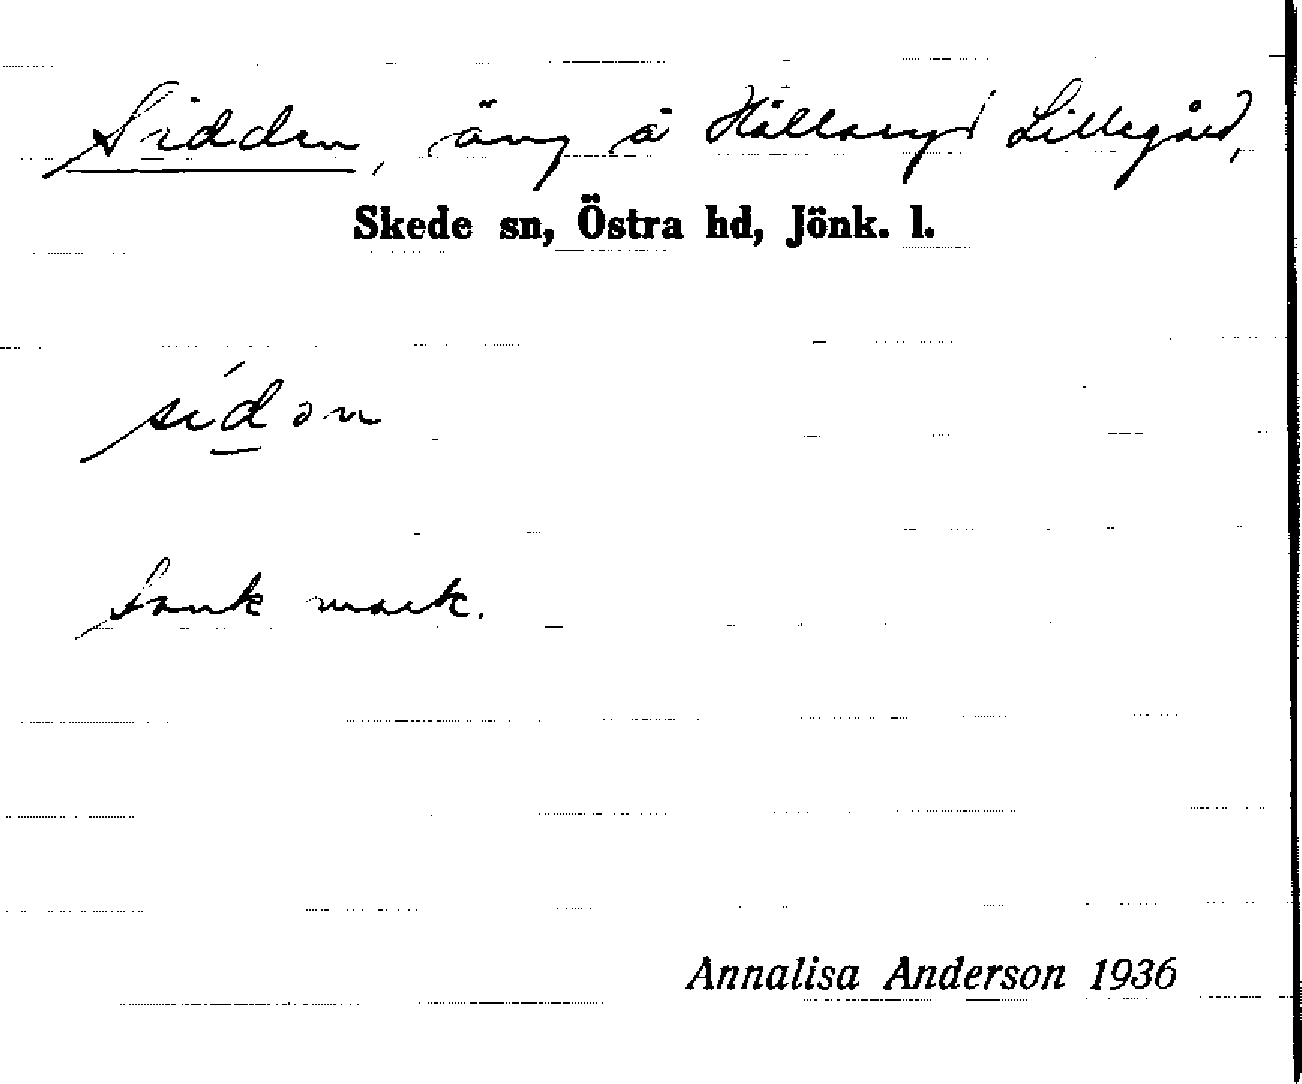 Sidden, äng å Hållaryd Lillegård,
Skede sn, Östra hd, Jönk. l.
sídən
Sank mark.
Annalisa Anderson 1936